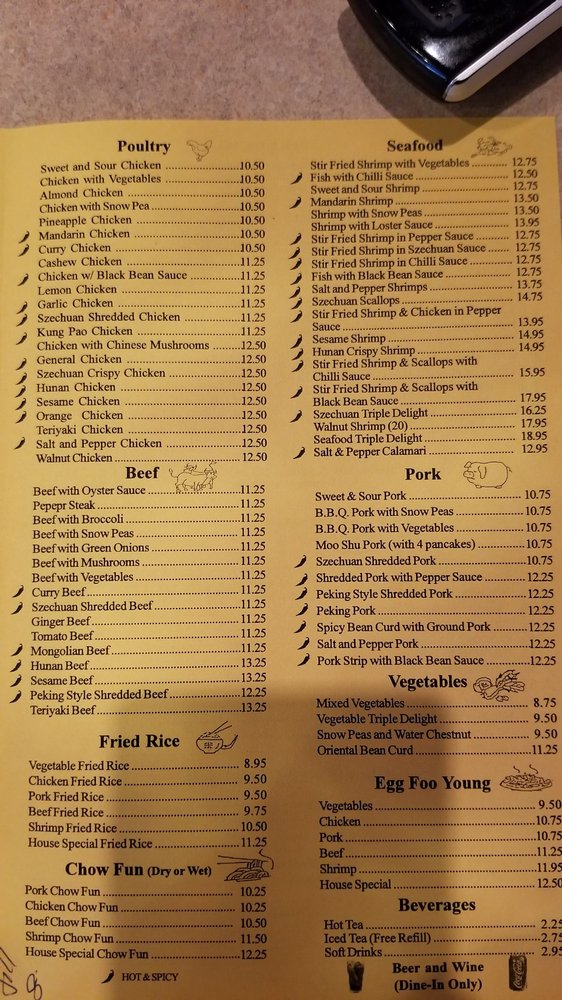 Poultry
Sweet and Sour Chicken 10.50
Chicken with Vegetables 10.50
Almond Chicken 10.50
Chicken with Snow Pea 10.50
Pineapple Chicken 10.50
Mandarin Chicken 10.50
Curry Chicken 10.50
Cashew Chicken 11.25
Chicken w/ Black Bean Sauce 11.25
Lemon Chicken 11.25
Garlic Chicken 11.25
Szechuan Shredded Chicken 11.25
Kung Pao Chicken 11.25
Chicken with Chinese Mushrooms 12.50
General Chicken 12.50
Szechuan Crispy Chicken 12.50
Hunan Chicken 12.50
Sesame Chicken 12.50
Orange Chicken 12.50
Teriyaki Chicken 12.50
Salt and Pepper Chicken 12.50
Walnut Chicken 12.50
Beef
Beef with Oyster Sauce 11.25
Pepepr Steak 11.25
Beef with Broccoli 11.25
Beef with Snow Peas 11.25
Beef with Green Onions 11.25
Beef with Mushrooms 11.25
Beef with Vegetables 11.25
Curry Beef 11.25
Szechuan Shredded Beef 11.25
Ginger Beef 11.25
Tomato Beef 11.25
Mongolian Beef 11.25
Hunan Beef 13.25
Sesame Beef 13.25
Peking Style Shredded Beef 12.25
Teriyaki Beef 13.25
Fried Rice
Vegetable Fried Rice 8.95
Chicken Fried Rice 9.50
Pork Fried Rice 9.50
Beef Fried Rice 9.75
Shrimp Fried Rice 10.50
House Special Fried Rice 11.25
Chow Fun (Dry or Wet)
Pork Chow Fun 10.25
Chicken Chow Fun 10.25
Beef Chow Fun 10.50
Shrimp Chow Fun 11.50
House Special Chow Fun 12.25
HOT & SPICY
Seafood
Stir Fried Shrimp with Vegetables 12.75
Fish with Chilli Sauce 12.50
Sweet and Sour Shrimp 12.75
Mandarin Shrimp 13.50
Shrimp with Snow Peas 13.50
Shrimp with Loster Sauce 13.95
Stir Fried Shrimp in Pepper Sauce 12.75
Stir Fried Shrimp in Szechuan Sauce 12.75
Stir Fried Shrimp in Chilli Sauce 12.75
Fish with Black Bean Sauce 12.75
Salt and Pepper Shrimps 13.75
Szechuan Scallops 14.75
Stir Fried Shrimp & Chicken in Pepper
Sauce 13.95
Sesame Shrimp 14.95
Hunan Crispy Shrimp 14.95
Stir Fried Shrimp & Scallops with
Chilli Sauce 15.95
Stir Fried Shrimp & Scallops with
Black Bean Sauce 17.95
Szechuan Triple Delight 16.25
Walnut Shrimp (20) 17.95
Seafood Triple Delight 18.95
Salt & Pepper Calamari 12.95
Pork
Sweet & Sour Pork 10.75
B.B.Q. Pork with Snow Peas 10.75
B.B.Q. Pork with Vegetables 10.75
Moo Shu Pork (with 4 pancakes) 10.75
Szechuan Shredded Pork 10.75
Shredded Pork with Pepper Sauce 12.25
Peking Style Shredded Pork 12.25
Peking Pork 12.25
Spicy Bean Curd with Ground Pork 12.25
Salt and Pepper Pork 12.25
Pork Strip with Black Bean Sauce 12.25
Vegetables
Mixed Vegetables 8.75
Vegetable Triple Delight 9.50
Snow Peas and Water Chestnut 9.50
Oriental Bean Curd 11.25
Egg Foo Young
Vegetables 9.50
Chicken 10.75
Pork 10.75
Beef 11.25
Shrimp 11.95
House Special 12.50
Beverages
Hot Tea 2.25
Iced Tea (Free Refill) 2.75
Soft Drinks 2.95
Beer and Wine
(Dine-In Only)